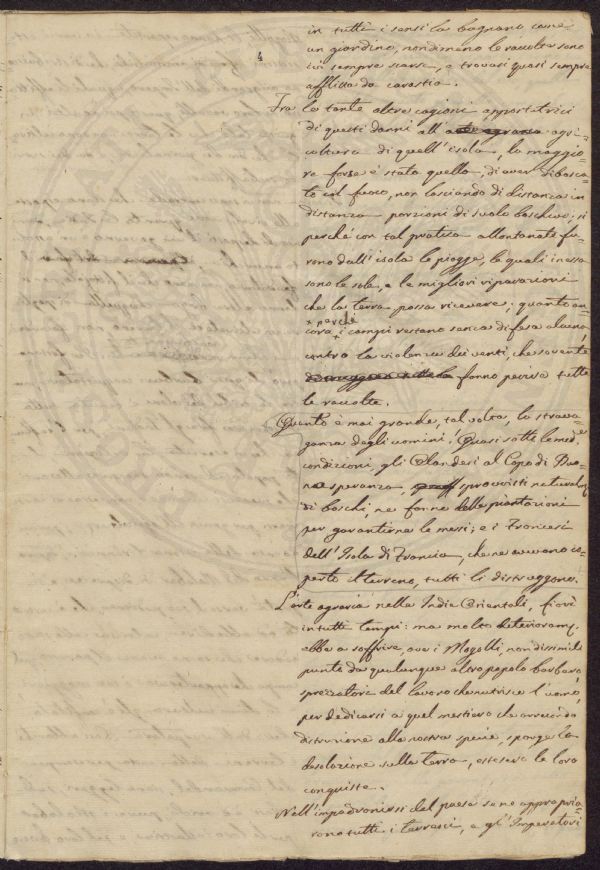 in tutti i sensi la bagnano come
un giardino, nondimeno le raccolte sono
ivi sempre scarse, e trovasi quasi sempre
afflitta da carestia.
4
Fra le tante altre cagioni apportatrici
di questi danni all' agri=
cultura di quell' isola, la maggio=
re forse è stata quella, di aver disbosca=
to col fuoco, non lasciando di distanza in
distanza porzioni di suolo boschivo; si
perché con tal pratica allontanate fu=
rono dall' isola le piogge, le quali in essa
sono le sole, e le migliori riparazioni
che la terra possa ricevere; quanto an=
+ perché
cora + i campi restano senza difesa alcuna
contro la violenza dei venti, che sovente
fanno perire tutte
le raccolte.
Quanto è mai grande, tal volta, la strava=
ganza degli uomini! Quasi sotto le med.e
condizioni, gli Olandesi al Capo di Buo=
na speranza, sprovvisti
di boschi, ne fanno delle piantazioni
per garantirne le messi; e i Francesi
dell' Isola di Francia, che ne avevano co=
perto il terreno, tutti li distruggono.
L'arte agraria nelle Indie Orientali, fiorì
in tutti tempi: ma molto deterioram.
ebbe a soffrire, ove i Mogolli, non dissimili
punto da qualunque altro popolo barbaro,
sprezzatore del lavoro che nutrisce l'uomo,
per dedicarsi a quel mestiero che arrecando
distruzione alla nostra specie, sparge la
desolazione sulla terra, estesero le loro
conquiste.
Nell' impadronirsi del paese se ne appropria=
rono tutti i terreni, e gl' Imperatori